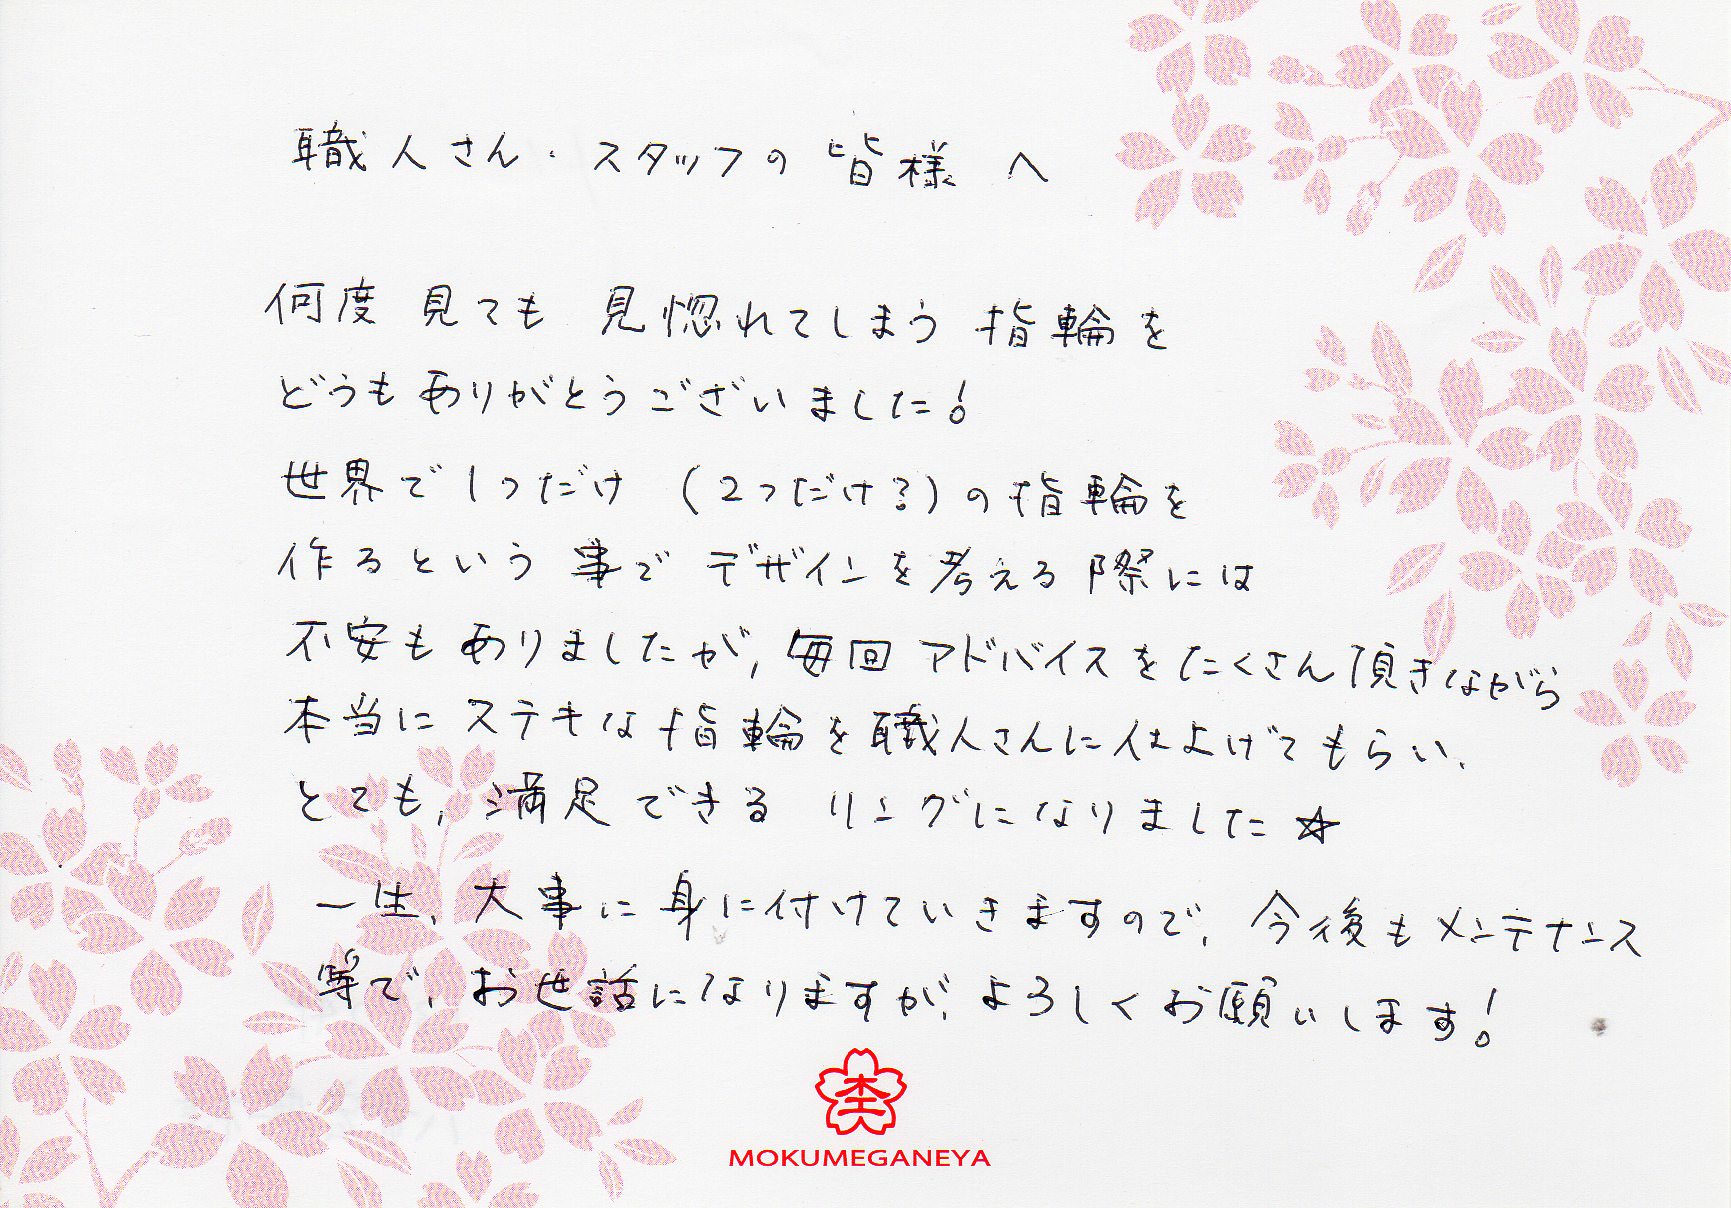 職人さん・スタッフの皆様へ
何度見ても見惚れてしまう指輪を
どうもありがとうございました!
世界で1つだけ(2つだけ?)の指輪を
作るという事でデザインを考える際には
不安もありましたが、毎回アドバイスをたくさん頂きながら
本当にステキな指輪を職人さんに仕上げてもらい、
とても、満足できるリングになりました☆
一生、大事に身に付けていきますので、今後もメンテナンス
等で、お世話になりますが、よろしくお願いします!
MOKUMEGANEYA